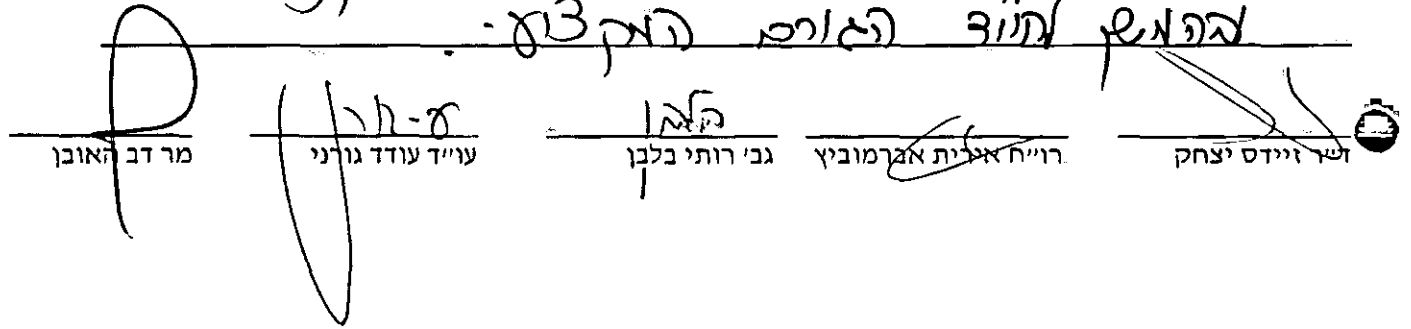 בהמשך לחו״ד הגורם המקצועי.
ד״ר זיידס יצחק רו״ח אירית אברמוביץ גב׳ רותי בלבן עו״ד עודד גורני מר דב האובן